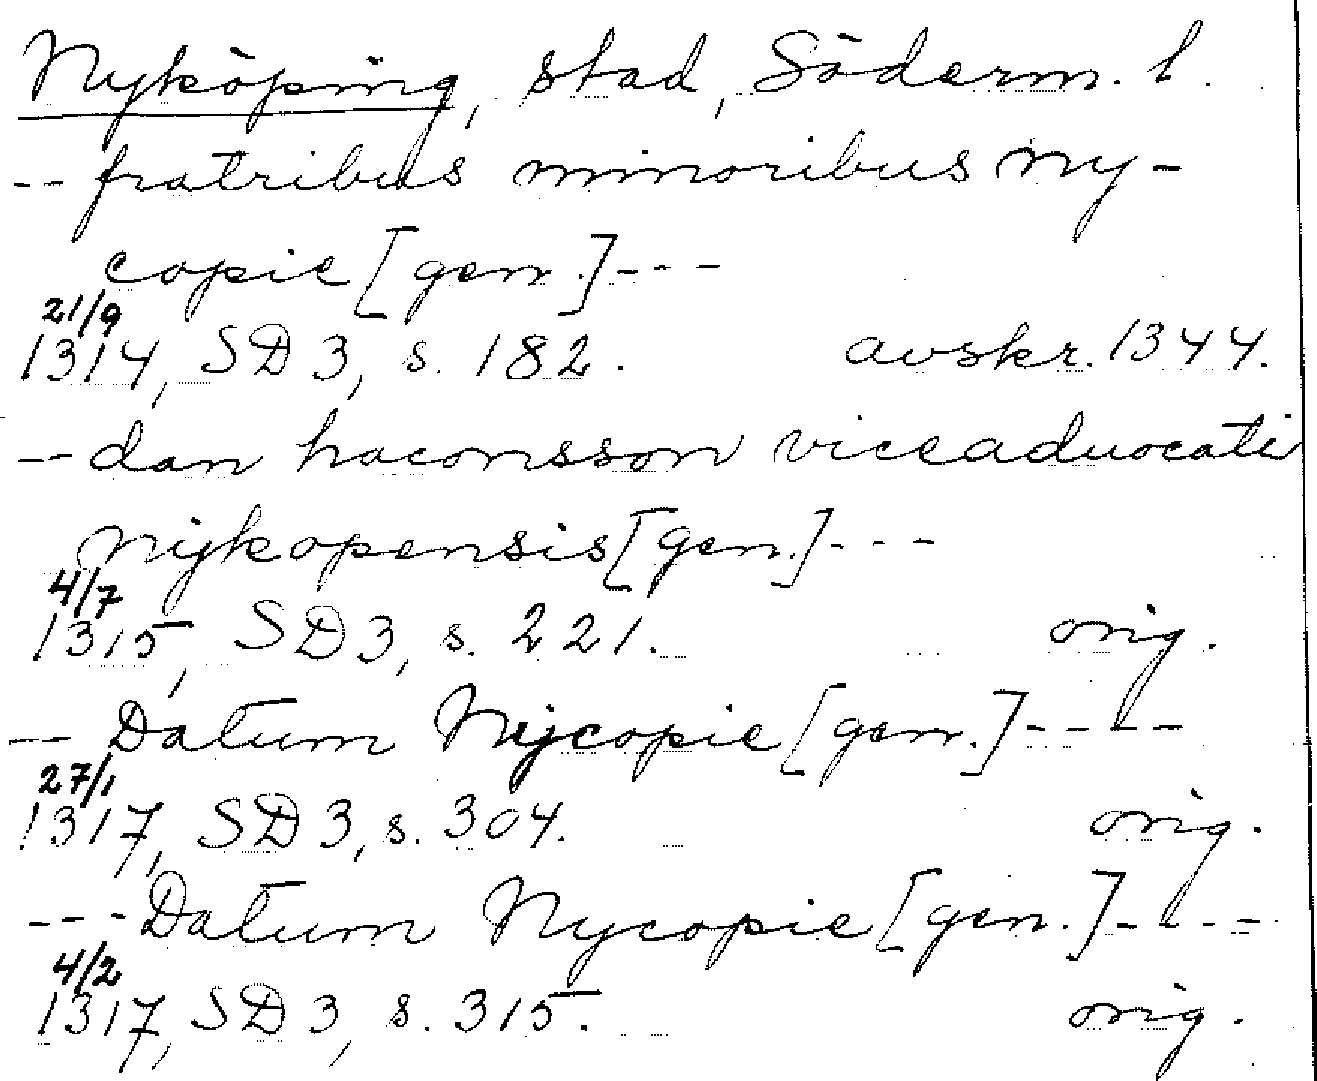 Nyköping, stad, Söderm. l.
-- fratribus minoribus ny-
copie [gen.] ---
21/9
1314, SD 3, s. 182. avskr. 1344.
-- dan haconsson viceaduocati
nijkopensis [gen.] ---
4/7
1315, SD 3, s. 221. orig.
-- Datum Nijcopie [gen.] ----
27/1
1317, SD 3, s. 304. orig.
--- Datum Nycopie [gen.] ----
4/2
1317, SD 3, s. 315. orig.